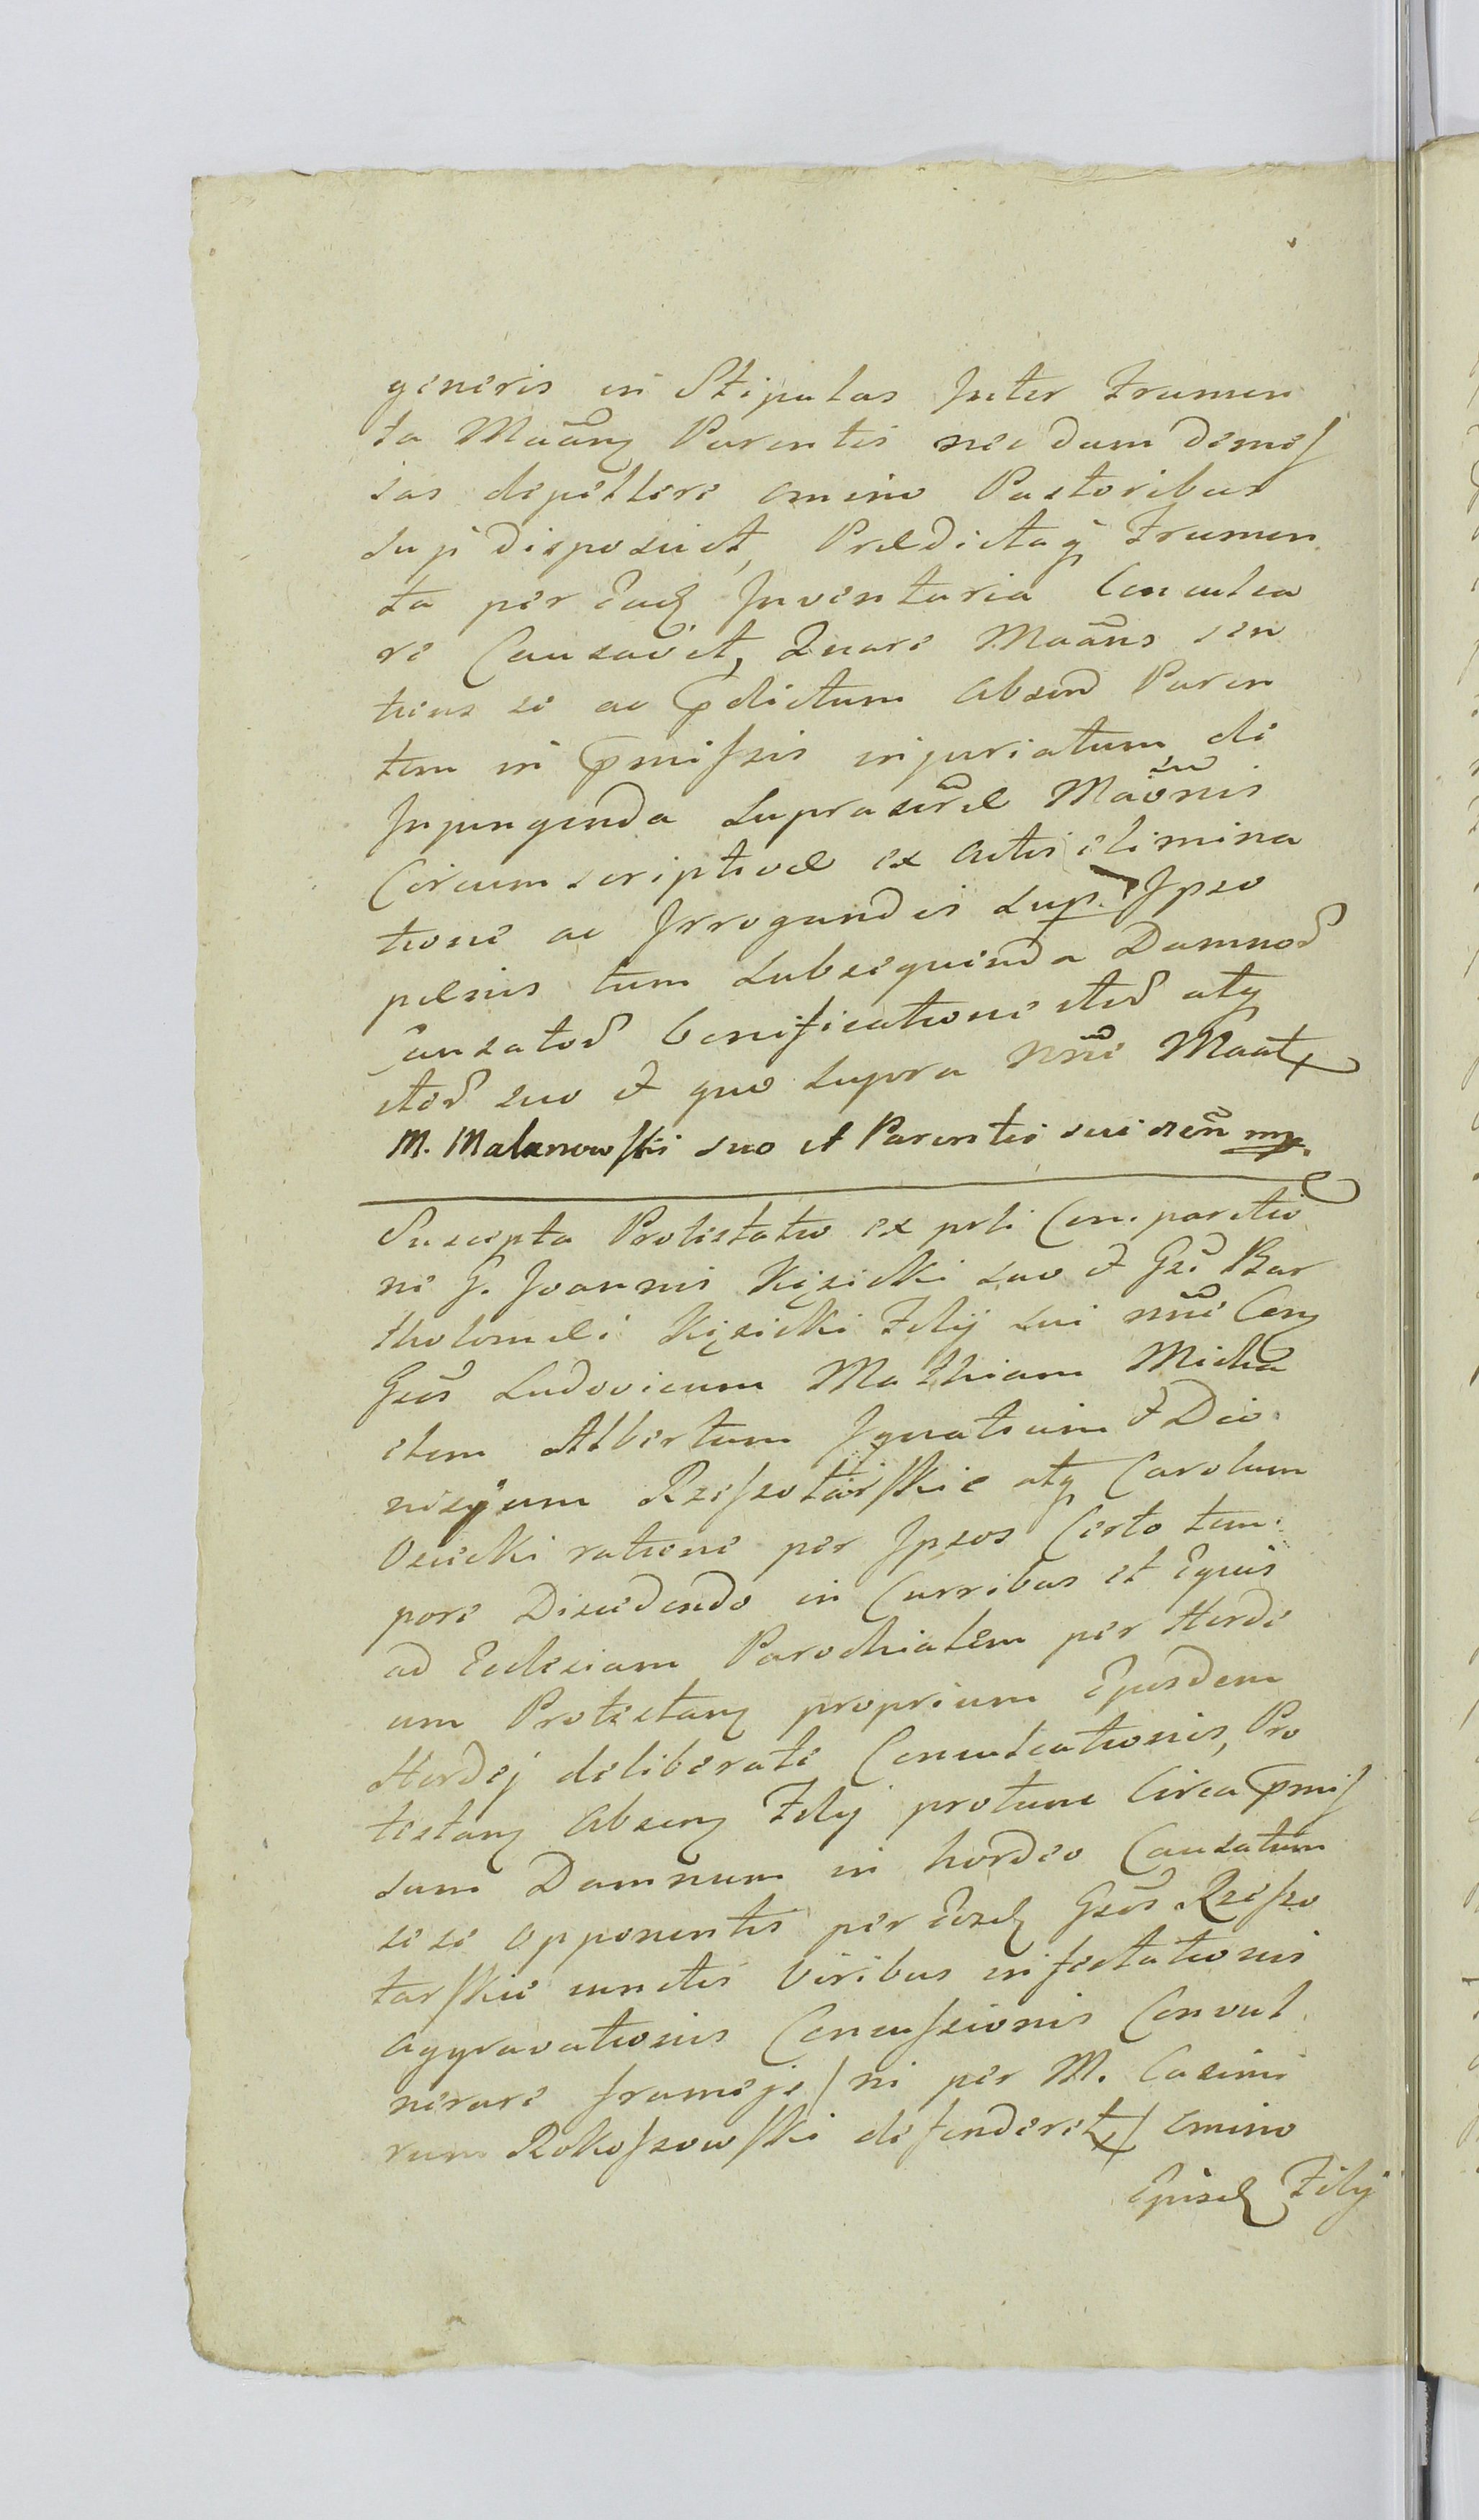 generis in Stipulas Inter Frumen
ta Maãnꝫ Parentis nec dum demeſ
sas depellere omnino Pastoribus
suis disposuit, Prædictaqꝫ Frumen
ta per Eadꝫ Inventaria Conculca
re Causavit, Quare Maãns sen
tiens se ac p̃dictum Absend Paren
tem in p̃miſsis injuriatum de
Injungenda Suprascr̃æ Maõnis
Circumscriptivæ ex Actis elimina
tione ac Irrogandis Sup. Ipso
pænis tum Subsequenda Damnoꝝ
Causatoꝝ bonificatione iteꝝ atqꝫ
iteꝝ suo et quo Supra nñe Maat
M. Malanowſki suo et Parentis sui nẽñ mp.
Suscepta Protestatio ex prti Comparitio
ne G. Joannis Kęsicki suo et Gsi Bar
tholomæi Kęsicki Filij sui nñe Conꝫ
Gsos Ludovicum Mathiam Micha
elem Albertum Ignatium et Dio
nisyum Rzeſzotarſkie atqꝫ Carolum
Osiecki ratione per Ipsos Certo tem
pore Discedendo in Curribus et Equis
ad Ecclesiam Parochialem per Horde
um Protestanꝫ proprium Ejusdem
Hordej deliberatè Conculcationis, Pro
testanꝫ Absenꝫ Filij protunc Circa p̃miſ
sum Damnum in hordeo Causatum
sese opponentis per Eosdꝫ Gsos Rzeſzo
tarſkie cunctis Viribus infectationis
aggravationis Concuſsionis Convul
nerare frameis / ni per M. Casimi
rum Rokoſzowſki defenderet / omnino
Ejusdꝫ Filij